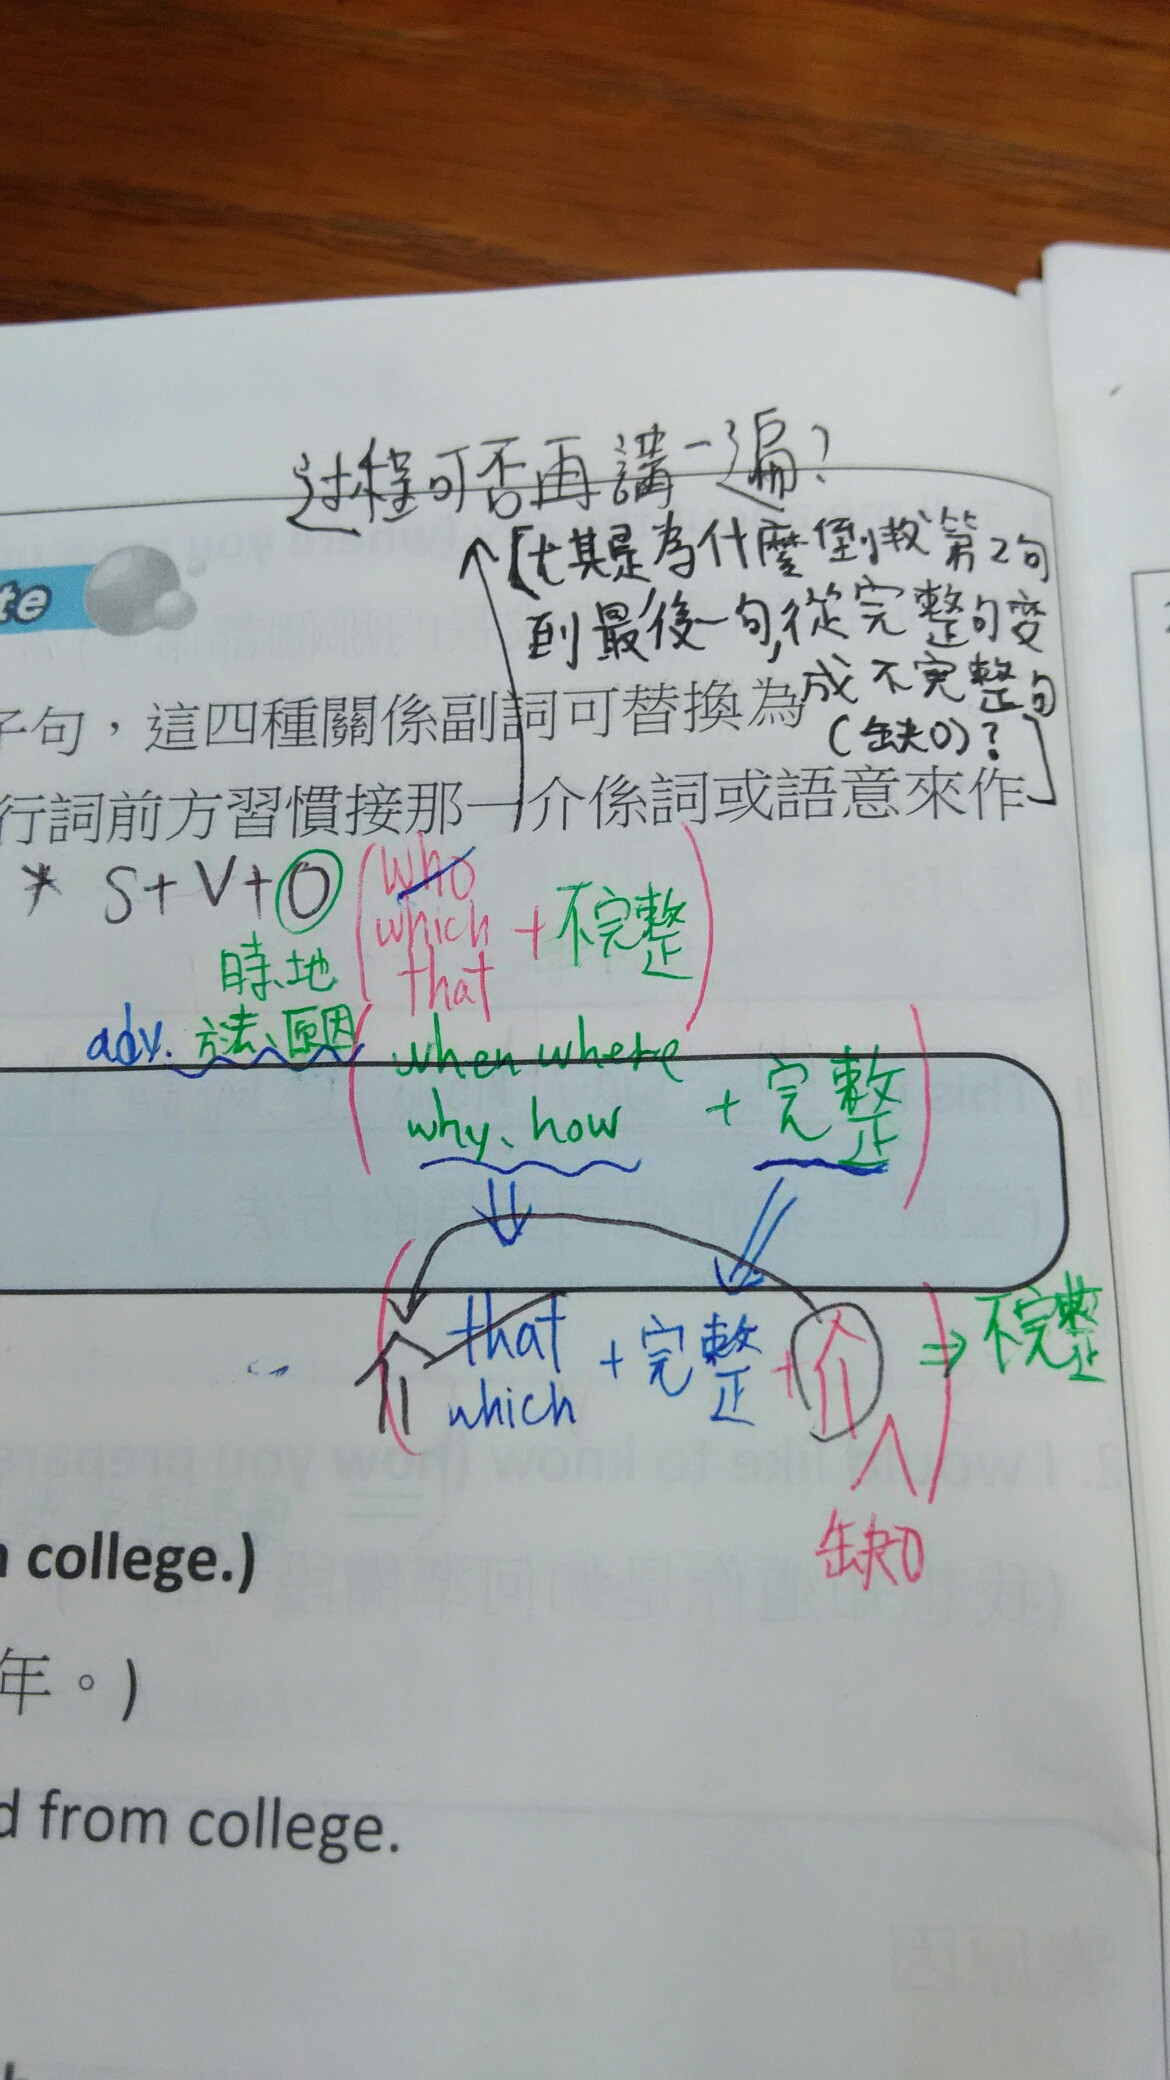 过程可否再講一遍?
[尤其是為什麼倒救第2句
到最後一句,從完整句变
成不完整句
(缺O)?]
te
子句,這四種關係副詞可替換為
行詞前方習慣接那一介係詞或語意來作
* S+V+O (who
which + 不完整)
that
時、地
adv. 方法、原因 (when where
why、how + 完整)
(介 that + 完整 + 介) ⇒ 不完整
which
缺O
n college.)
年。)
d from college.